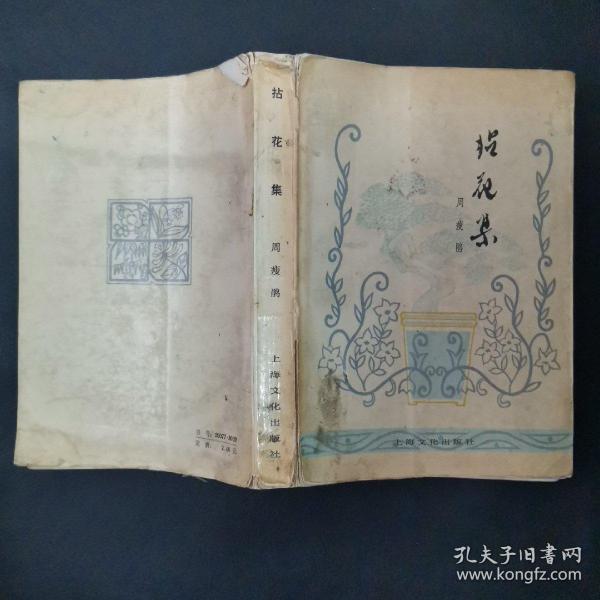 拈花集
周瘦鹃
上海文化出版社
拈花集
周瘦鹃
上海文化出版社
书号：
定价：
孔夫子旧书网
www.kongfz.com